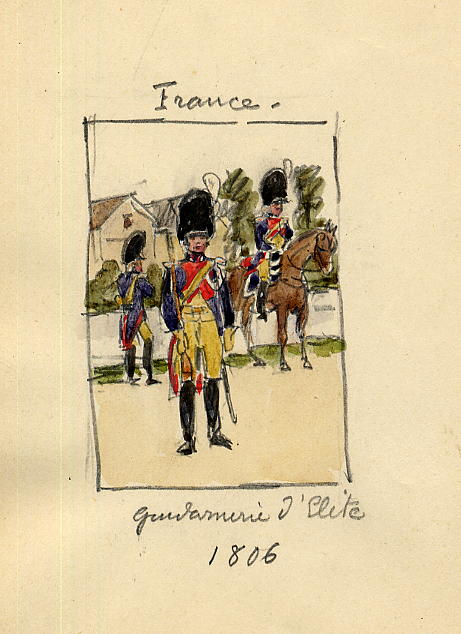 France.
Gendarmerie d'Elite
1806